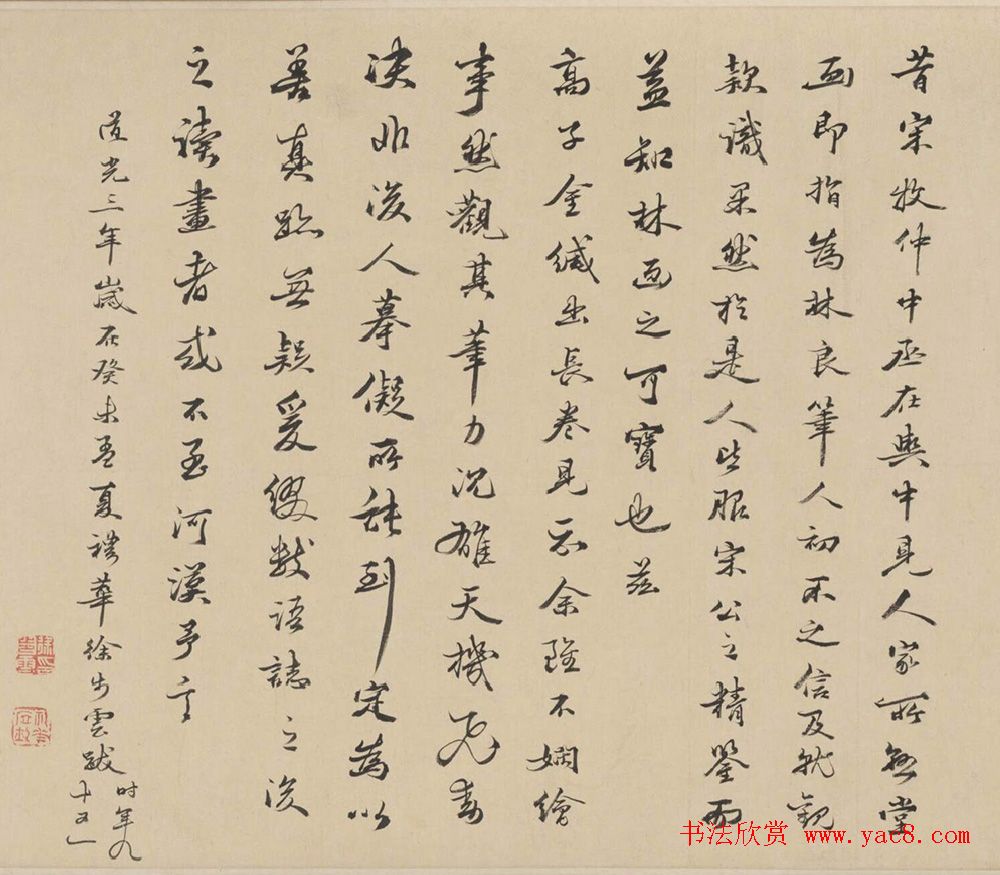 昔宋牧仲中丞在輿中見人家所懸堂
画即指為林良筆人初不之信及就觀
款識果然於是人皆服宋公之精鑒而
益知林画之可寶也茲
高子金緘出長卷見示余雖不嫻繪
事然觀其筆力沉雄天機飛舞
決非後人摹儗所能到定為以
善真跡無疑爰綴数語誌之後
之讀畫者或不至河漢予言
道光三年歲在癸未孟夏穠華徐步雲跋
时年九
十又一
书法欣赏 www.yac8.com